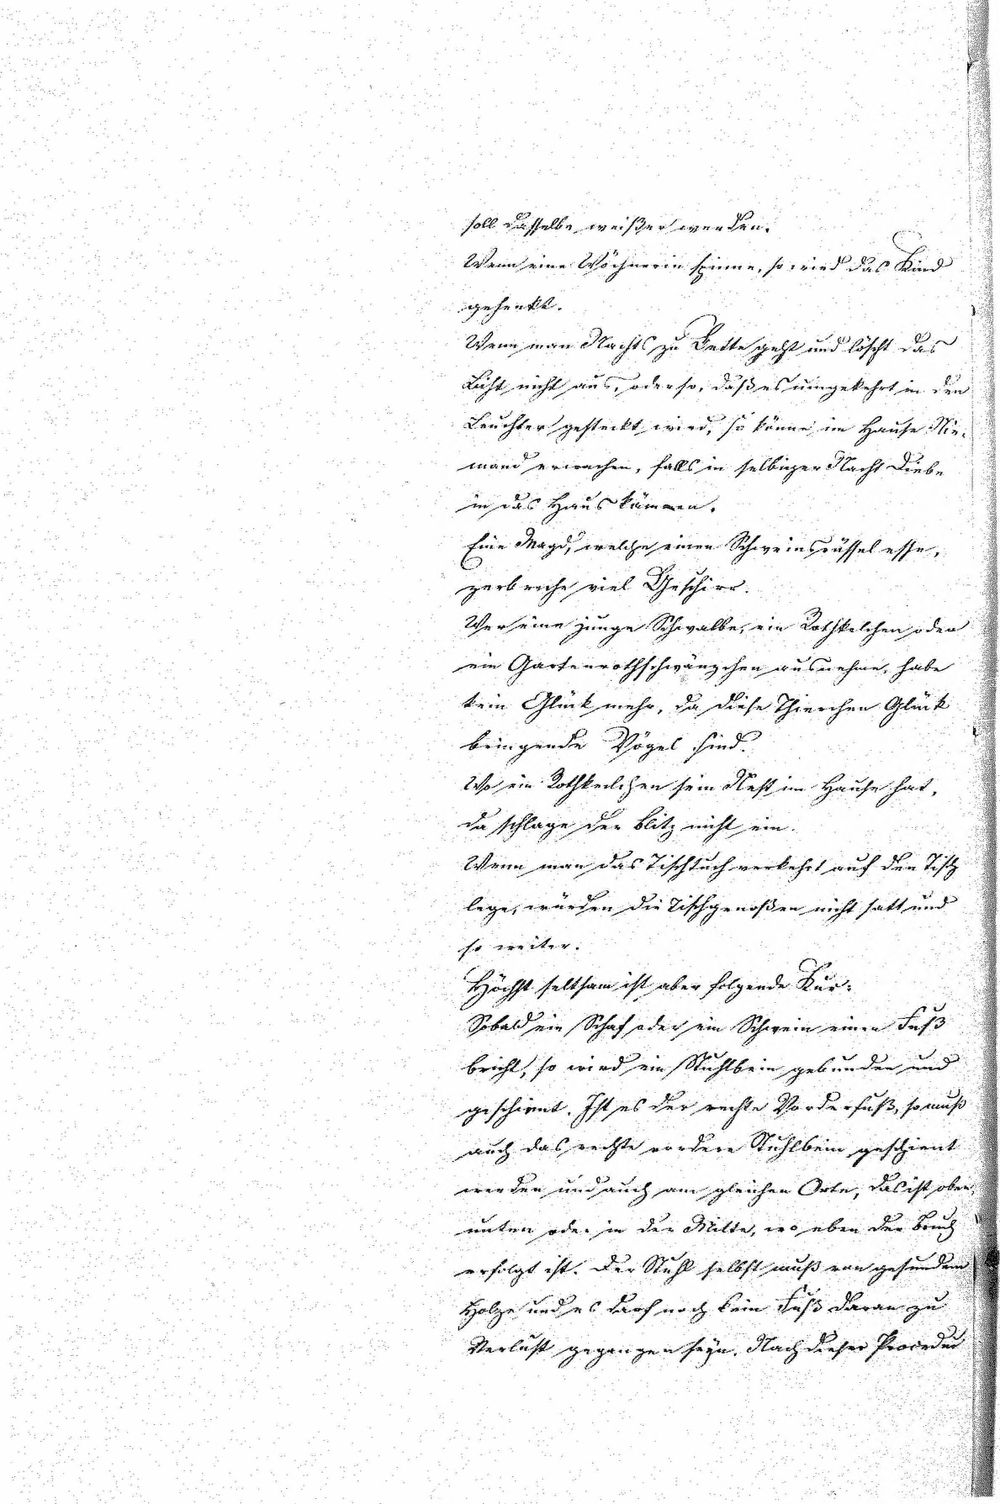 soll dasselbe weißer werden.
Wenn eine Wöchnerin spinne, so wird das Kind
gehenkt.
Wenn man Nachts zu Bette geht und löscht das
Licht nicht aus, oder so, daß es umgekehrt in den
Leuchter gesteckt wird, so könne im Hause Nie-
mand erwachen, falls in selbiger Nacht Diebe
in das Haus kämmen.
Eine Magd, welche einen Schweinsrüssel esse,
zerbreche viel Geschirr.
Wer eine junge Schwalbe, ein Rothkelchen oder
ein Gartenrothschwänzchen ausnehme, habe
kein Glück mehr, da diese Thierchen Glück
bringende Vögel sind.
Wo ein Rothkelchen sein Nest im Hause hat,
da schlage der Blitz nicht ein.
Wenn man das Tischtuch verkehrt auf den Tisch
lege, würden die Tischgenoßen nicht satt und
so weiter.
Höchst seltsam ist aber folgende Kur:
Sobald ein Schaf oder ein Schwein einen Fuß
bricht, so wird ein Stuhlbein gebunden und
geschient. Ist es der rechte Vorderfuß, so muß
auch das rechte vordere Stuhlbein geschient
werden und auch am gleichen Orte, das ist oben,
unten oder in der Mitte, wo eben der Bruch
erfolgt ist. Der Stuhl selbst muß von gesundem
Holze und es darf noch kein Fuß daran zu
Verlust gegangen seyn. Nach dieser Procedur